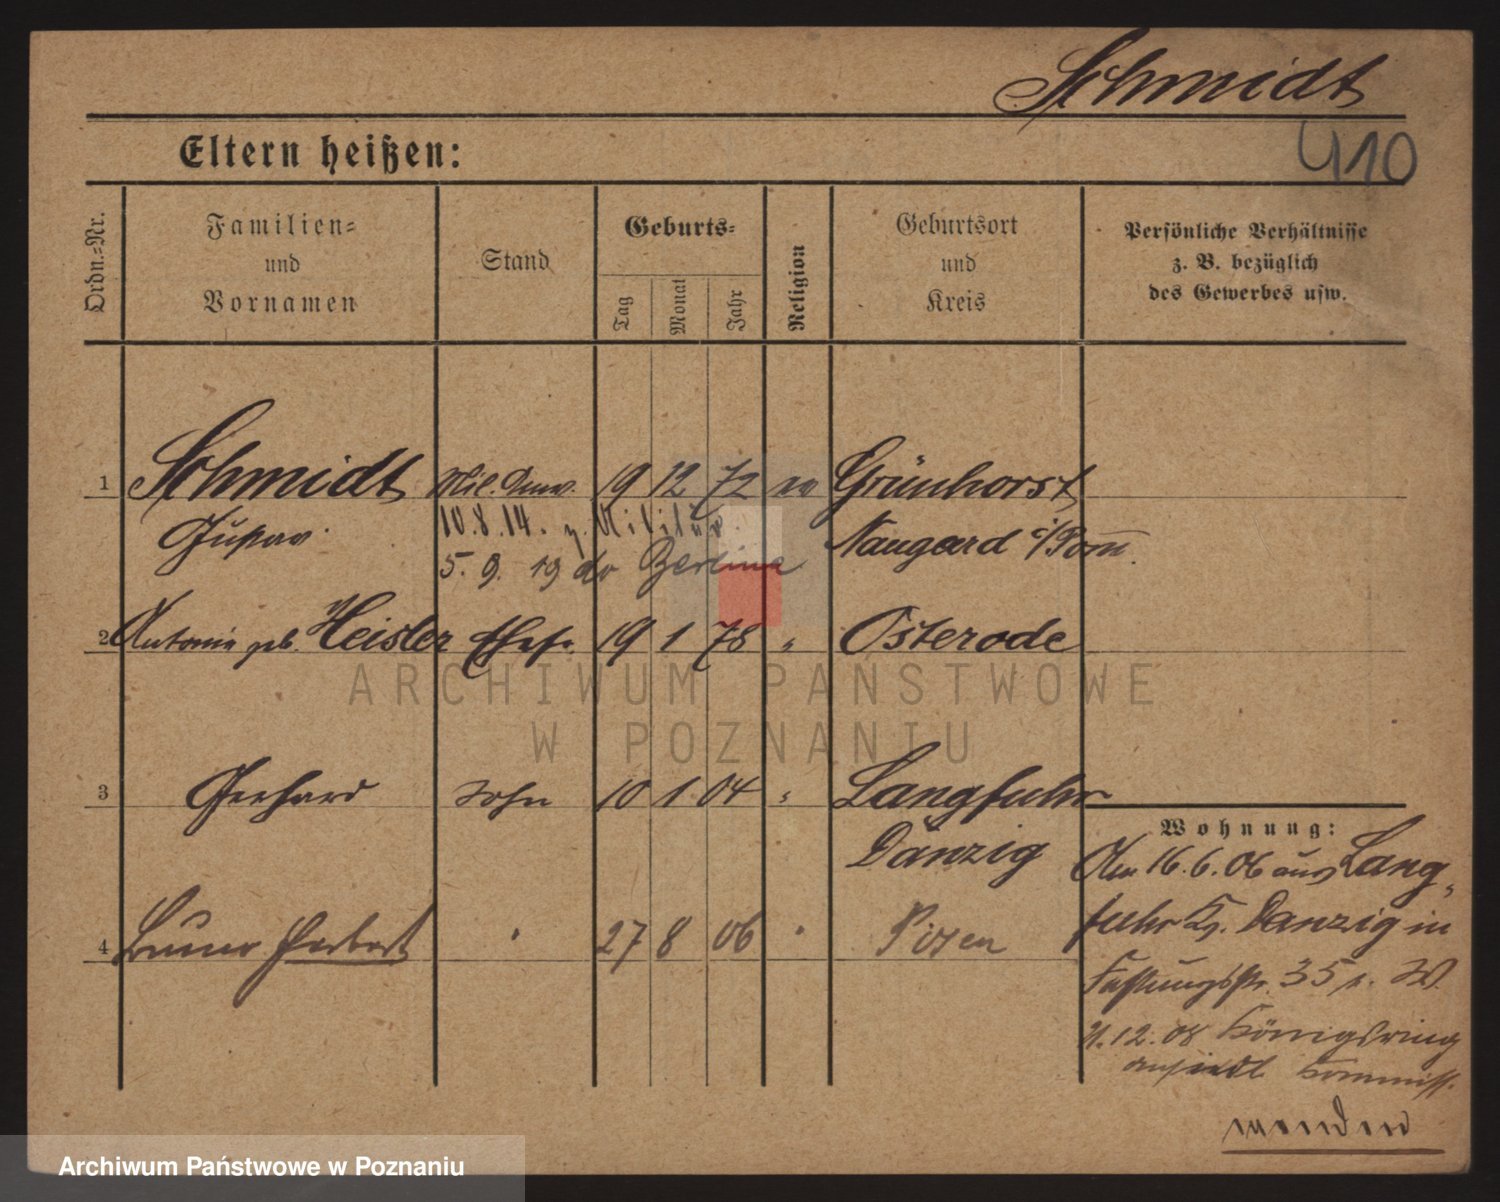 Schmidt
410
Eltern heißen:
Ordn.-Nr.
Familien-
und
Vornamen
Stand
Geburts-
Tag
Monat
Jahr
Religion
Geburtsort
und
Kreis
Persönliche Verhältnisse
z. B. bezüglich
des Gewerbes usw.
1 Schmidt Mil. Anw. 19 12 72 ev Grünhorst
Gustav 10.8.14. z. Militär. Naugard i/Pom.
5. 9. 19 do Berlina
2 Antonie geb. Heisler Ehefr. 19 1 78 " Osterode
ARCHIWUM PAŃSTWOWE
W POZNANIU
3 Gerhard Sohn 10 1 04 " Langfuhr
Danzig
4 Bruno Herbert " 27 8 06 " Posen
Wohnung:
Am 16.6.06 aus Lang-
fuhr Kr. Danzig in
Festungsstr. 35 b. W.
12.08 Königsring
ansiedl Kommiss.
Archiwum Państwowe w Poznaniu